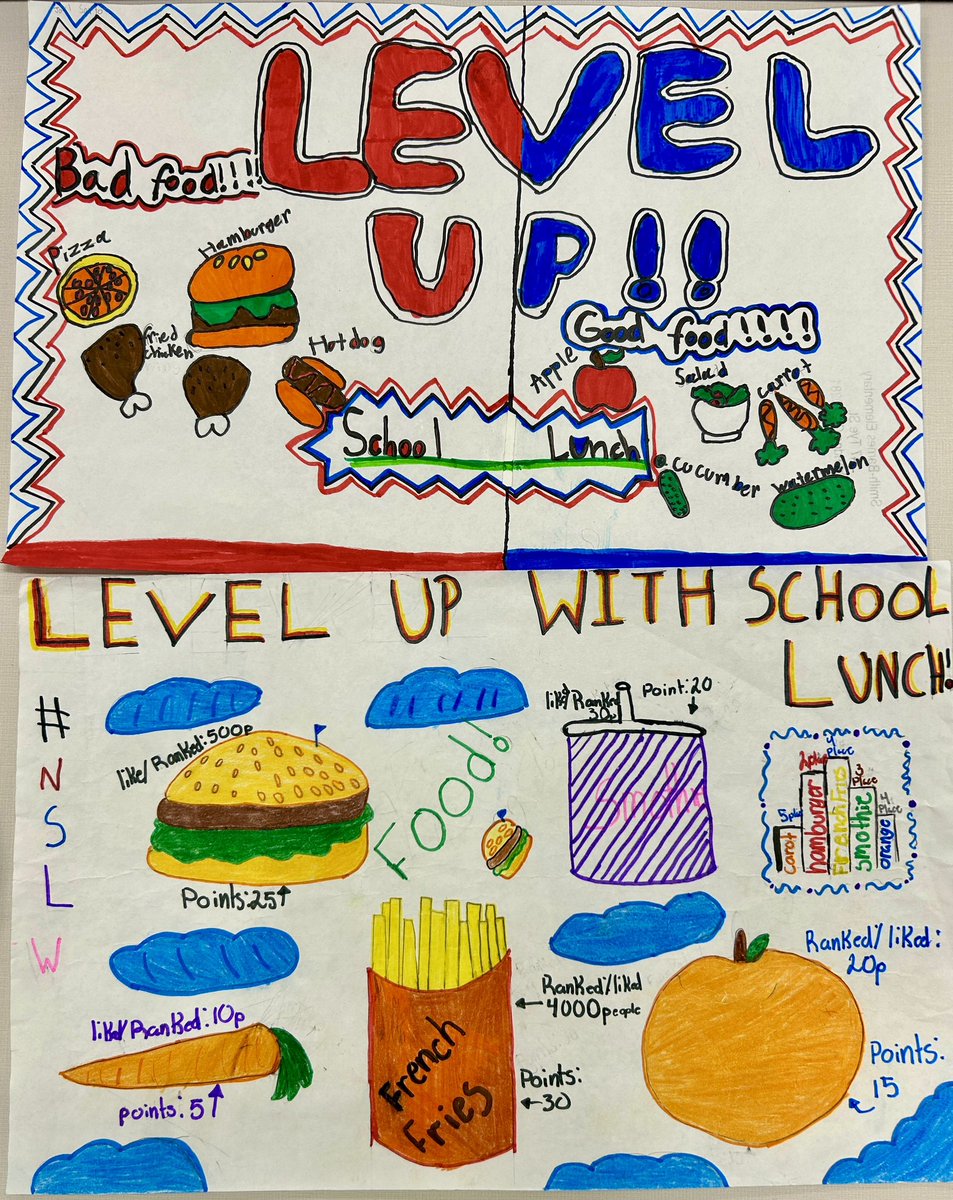 LEVEL
UP!!
Bad food!!!!
Pizza
Hamburger
fried
chicken
Hotdog
Good food!!!!!
Apple
Salad
carrot
cucumber
watermelon
School Lunch
Smith-Barnes Elementary
LEVEL UP WITH SCHOOL
LUNCH!
#
N
S
L
W
like/Ranked: 500p
Points: 25
FOOD!
like/Ranked
30p
Point: 20
Smothie
5 place
carot
2 place
hamburger
1 place
3
Place
smothie
4
Place
orange
like/Ranked: 10p
points: 5
French
Fries
Ranked/liked
4000 people
Points:
30
Ranked/liked:
20p
Points:
15